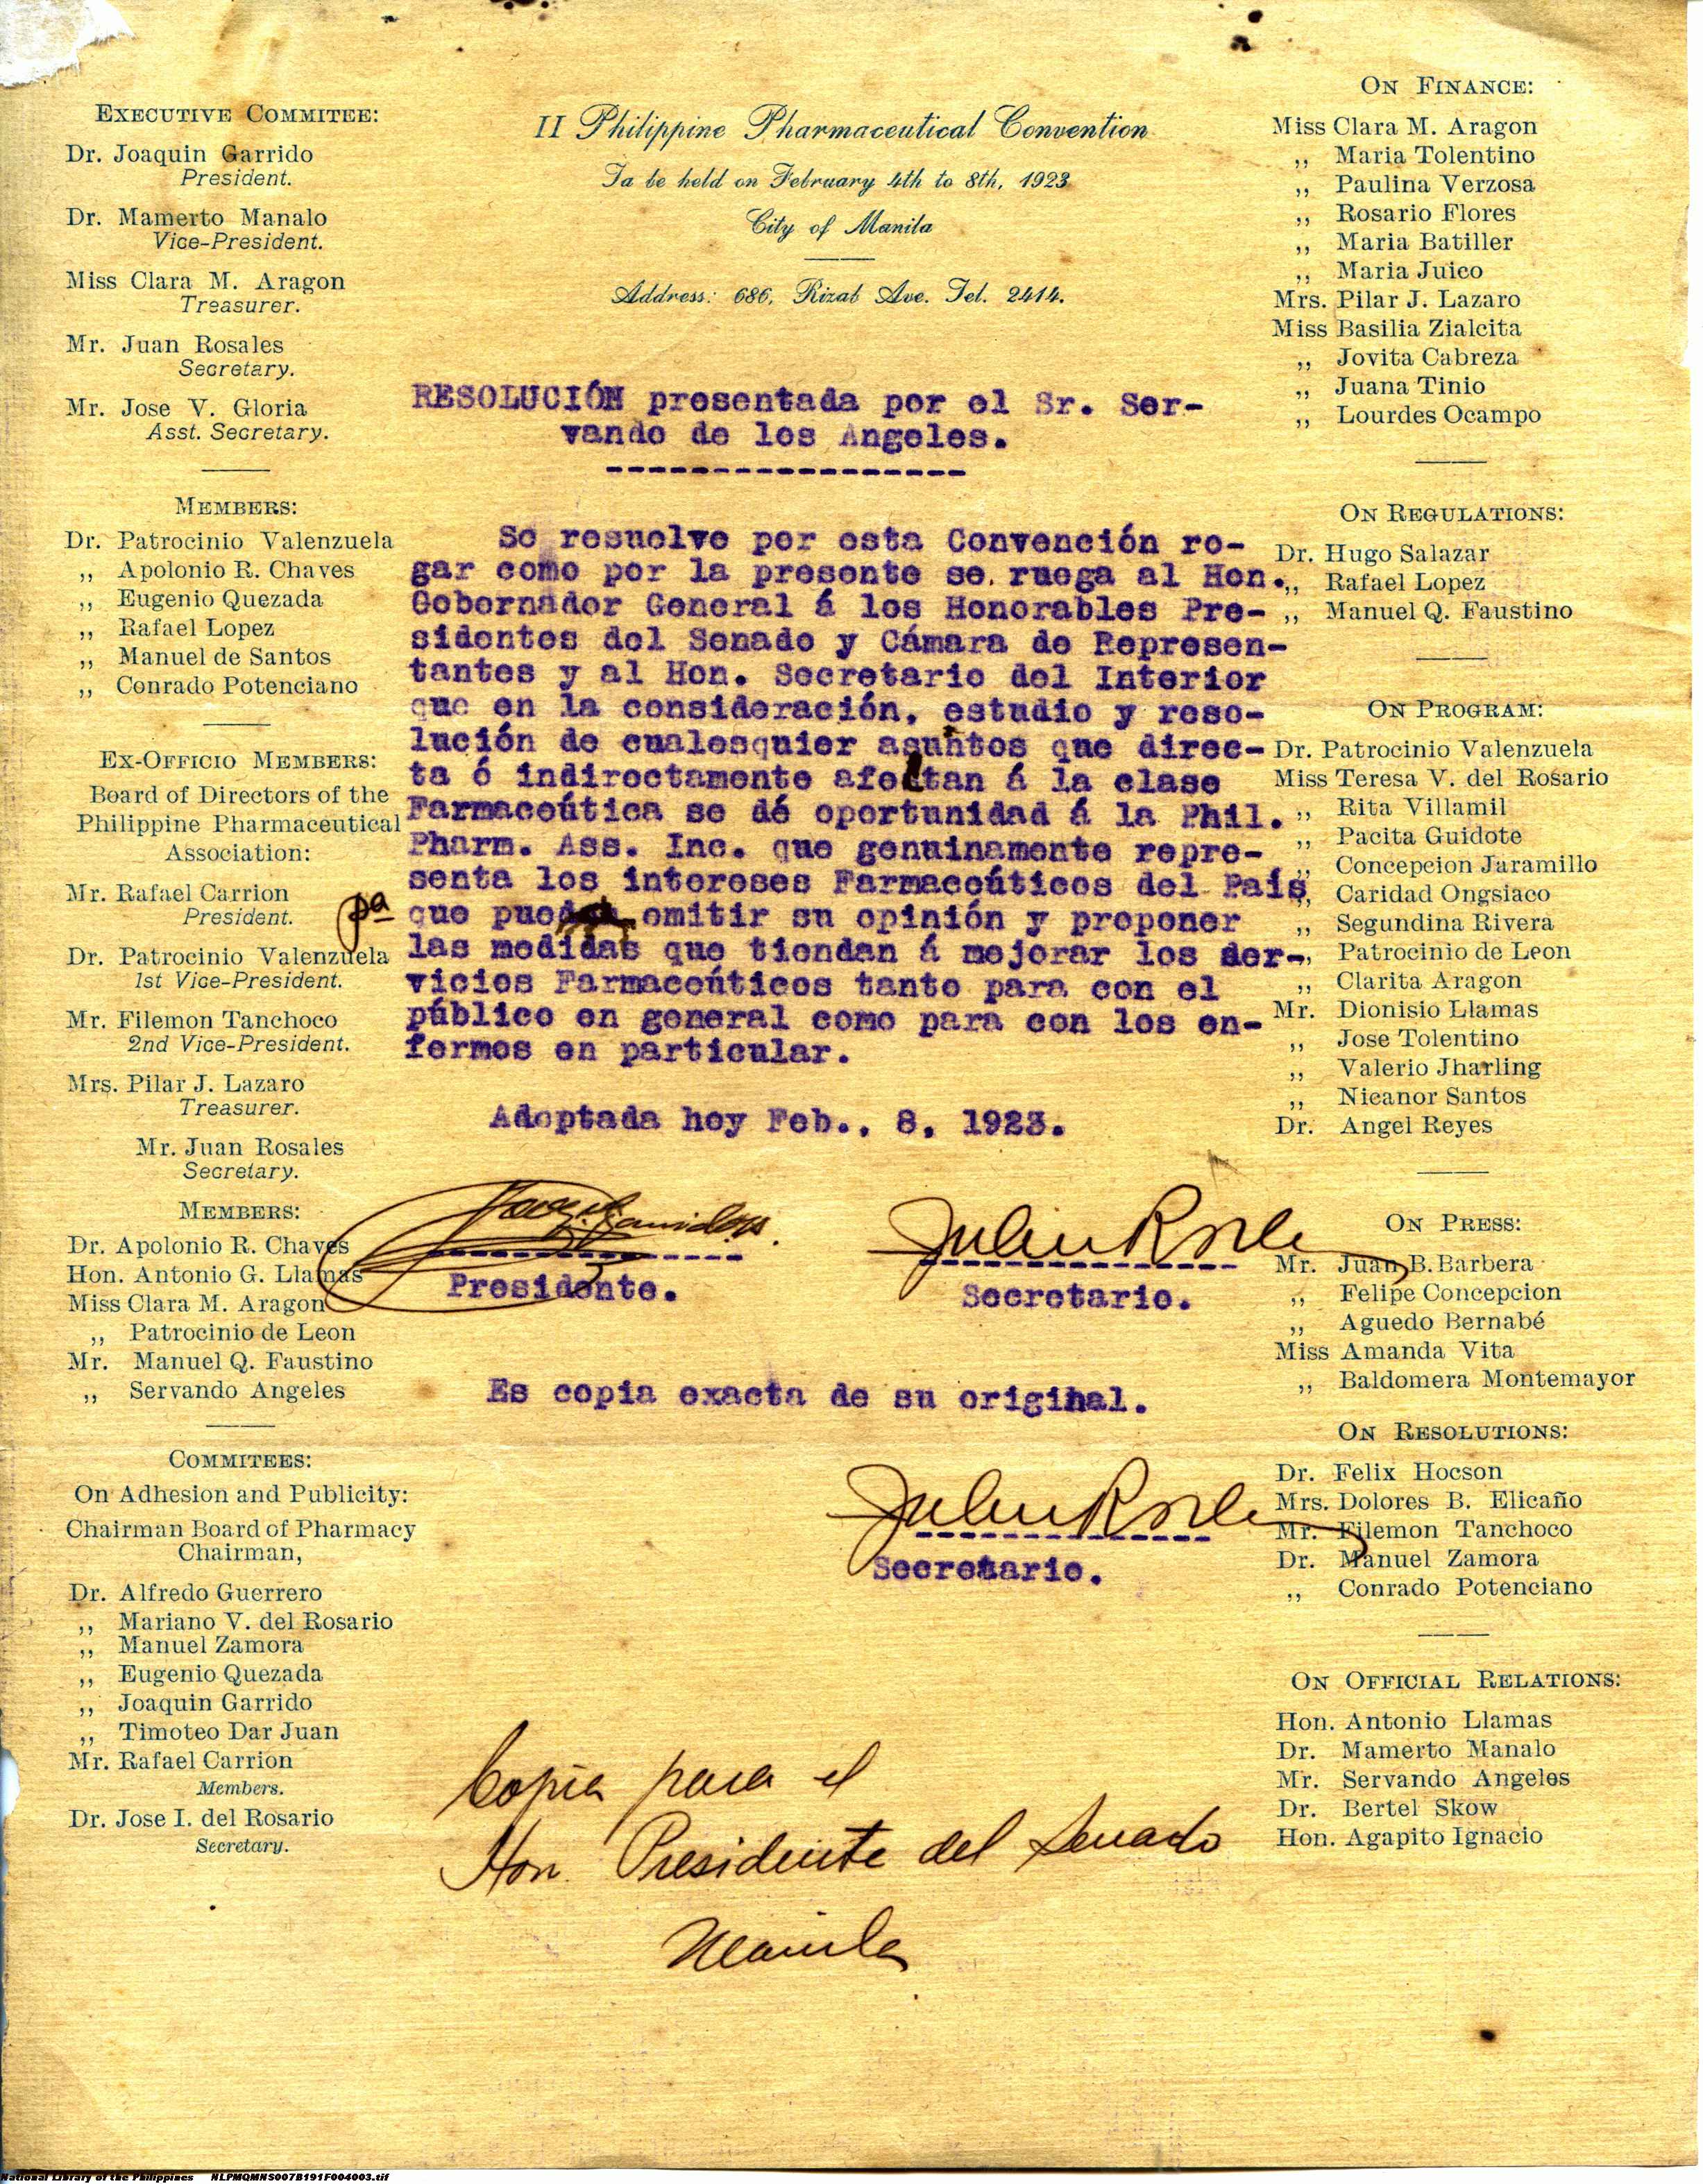 EXECUTIVE COMMITEE:
Dr. Joaquin Garrido
President.
Dr. Mamerto Manalo
Vice-President.
Miss Clara M. Aragon
Treasurer.
Mr. Juan Rosales
Secretary.
Mr. Jose V. Gloria
Asst. Secretary.
MEMBERS:
Dr. Patrocinio Valenzuela
,, Apolonio R. Chaves
,, Eugenio Quezada
,, Rafael Lopez
,, Manuel de Santos
,, Conrado Potenciano
EX-OFFICIO MEMBERS:
Board of Directors of the
Philippine Pharmaceutical
Association:
Mr. Rafael Carrion
President.
Dr. Patrocinio Valenzuela
1st Vice-President.
Mr. Filemon Tanchoco
2nd Vice-President.
Mrs. Pilar J. Lazaro
Treasurer.
Mr. Juan Rosales
Secretary.
MEMBERS:
Dr. Apolonio R. Chaves
Hon. Antonio G. Llamas
Miss Clara M. Aragon
,, Patrocinio de Leon
Mr. Manuel Q. Faustino
,, Servando Angeles
COMMITEES:
On Adhesion and Publicity:
Chairman Board of Pharmacy
Chairman,
Dr. Alfredo Guerrero
,, Mariano V. del Rosario
,, Manuel Zamora
,, Eugenio Quezada
,, Joaquin Garrido
,, Timoteo Dar Juan
Mr. Rafael Carrion
Members.
Dr. Jose I. del Rosario
Secretary.
II Philippine Pharmaceutical Convention
To be held on February 4th to 8th, 1923
City of Manila
Address: 686, Rizal Ave. Tel. 2414.
RESOLUCIÓN presentada por el Sr. Ser-
vando de los Angeles.
-----------------
Se resuelve por esta Convención ro-
gar como por la presente se. ruega al Hon.
Gobernador General á los Honorables Pre-
sidentes del Senado y Cámara de Represen-
tantes y al Hon. Secretario del Interior
que en la consideración, estudio y reso-
lución de cualesquier asuntos que direc-
ta ó indirectamente afectan á la clase
Farmaceútica se dé oportunidad á la Phil.
Pharm. Ass. Inc. que genuinamente repre-
senta los intereses Farmaceúticos del País,
pa que pueda emitir su opinión y proponer
las medidas que tiendan á mejorar los ser-
vicios Farmaceúticos tanto para con el
público en general como para con los en-
fermos en particular.
Adoptada hoy Feb., 8, 1923.
Presidente.
Secretario.
Es copia exacta de su original.
Secretario.
Copia para el
Hon. Presidente del Senado
Manila
ON FINANCE:
Miss Clara M. Aragon
,, Maria Tolentino
,, Paulina Verzosa
,, Rosario Flores
,, Maria Batiller
,, Maria Juico
Mrs. Pilar J. Lazaro
Miss Basilia Zialcita
,, Jovita Cabreza
,, Juana Tinio
,, Lourdes Ocampo
ON REGULATIONS:
Dr. Hugo Salazar
,, Rafael Lopez
,, Manuel Q. Faustino
ON PROGRAM:
Dr. Patrocinio Valenzuela
Miss Teresa V. del Rosario
,, Rita Villamil
,, Pacita Guidote
,, Concepcion Jaramillo
,, Caridad Ongsiaco
,, Segundina Rivera
,, Patrocinio de Leon
,, Clarita Aragon
Mr. Dionisio Llamas
,, Jose Tolentino
,, Valerio Jharling
,, Nicanor Santos
Dr. Angel Reyes
ON PRESS:
Mr. Juan B. Barbera
,, Felipe Concepcion
,, Aguedo Bernabé
Miss Amanda Vita
,, Baldomera Montemayor
ON RESOLUTIONS:
Dr. Felix Hocson
Mrs. Dolores B. Elicaño
Mr. Filemon Tanchoco
Dr. Manuel Zamora
,, Conrado Potenciano
ON OFFICIAL RELATIONS:
Hon. Antonio Llamas
Dr. Mamerto Manalo
Mr. Servando Angeles
Dr. Bertel Skow
Hon. Agapito Ignacio
National Library of the Philippines NLPMQMNS007B191F004003.tif